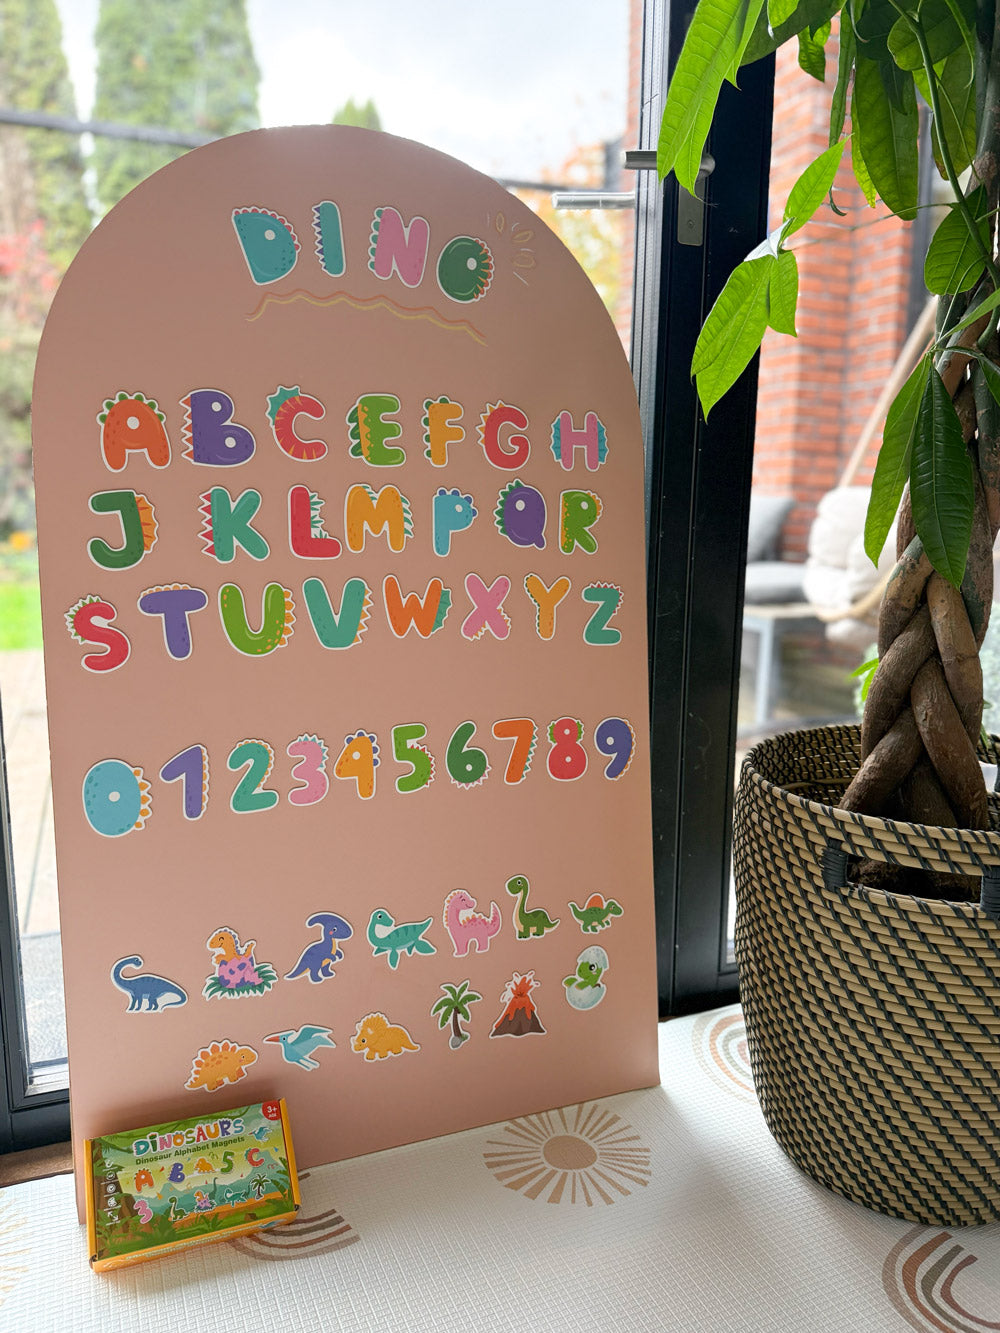 DINO
ABCEFGH
JKLMPQR
STUVWXYZ
0123456789
3+
AGE
DINOSAURS
Dinosaur Alphabet Magnets
A B 5 C
3